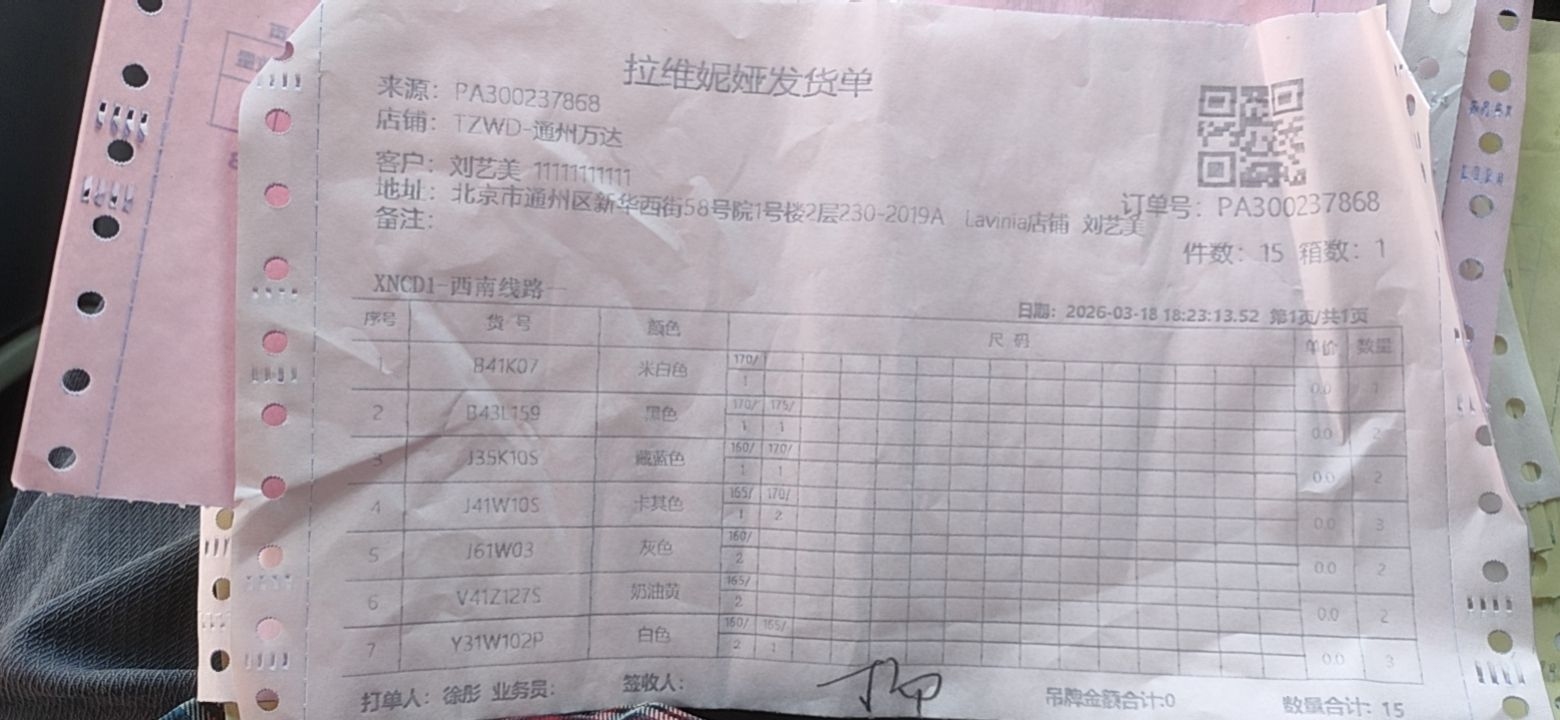 拉维妮娅发货单
来源：PA300237868
店铺：TZWD-通州万达
客户：刘艺美 11111111111
地址：北京市通州区新华西街58号院1号楼2层230-2019A Lavinia店铺 刘艺美
备注：
订单号：PA300237868
件数：15 箱数：1
XNCD1-西南线路一
日期：2026-03-18 18:23:13.52 第1页/共1页
序号 货号 颜色 尺码 单价 数量
1 B41K07 米白色 170/ 0.0 1
1
2 B43L159 黑色 170/ 175/ 0.0 2
1 1
3 J35K10S 藏蓝色 160/ 170/ 0.0 2
1 1
4 J41W10S 卡其色 165/ 170/ 0.0 3
1 2
5 J61W03 灰色 160/ 0.0 2
2
6 V41Z127S 奶油黄 165/ 0.0 2
2
7 Y31W102P 白色 160/ 165/ 0.0 3
2 1
打单人：徐彤 业务员： 签收人： 吊牌金额合计:0 数量合计：15